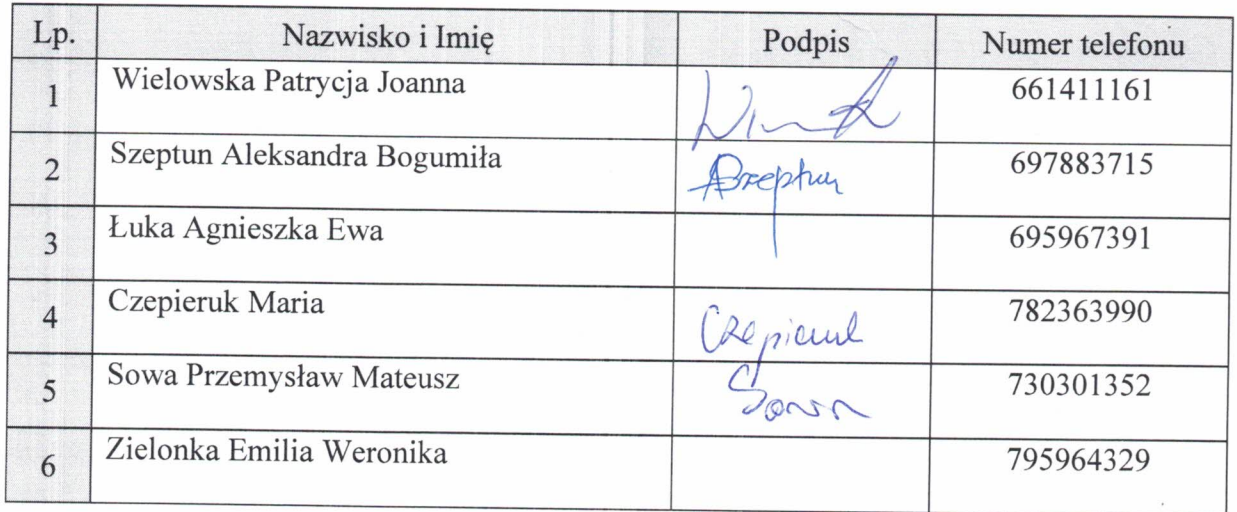 Lp. Nazwisko i Imię Podpis Numer telefonu
1 Wielowska Patrycja Joanna 661411161
2 Szeptun Aleksandra Bogumiła ASzeptun 697883715
3 Łuka Agnieszka Ewa 695967391
4 Czepieruk Maria 782363990
5 Sowa Przemysław Mateusz Sowa 730301352
6 Zielonka Emilia Weronika 795964329